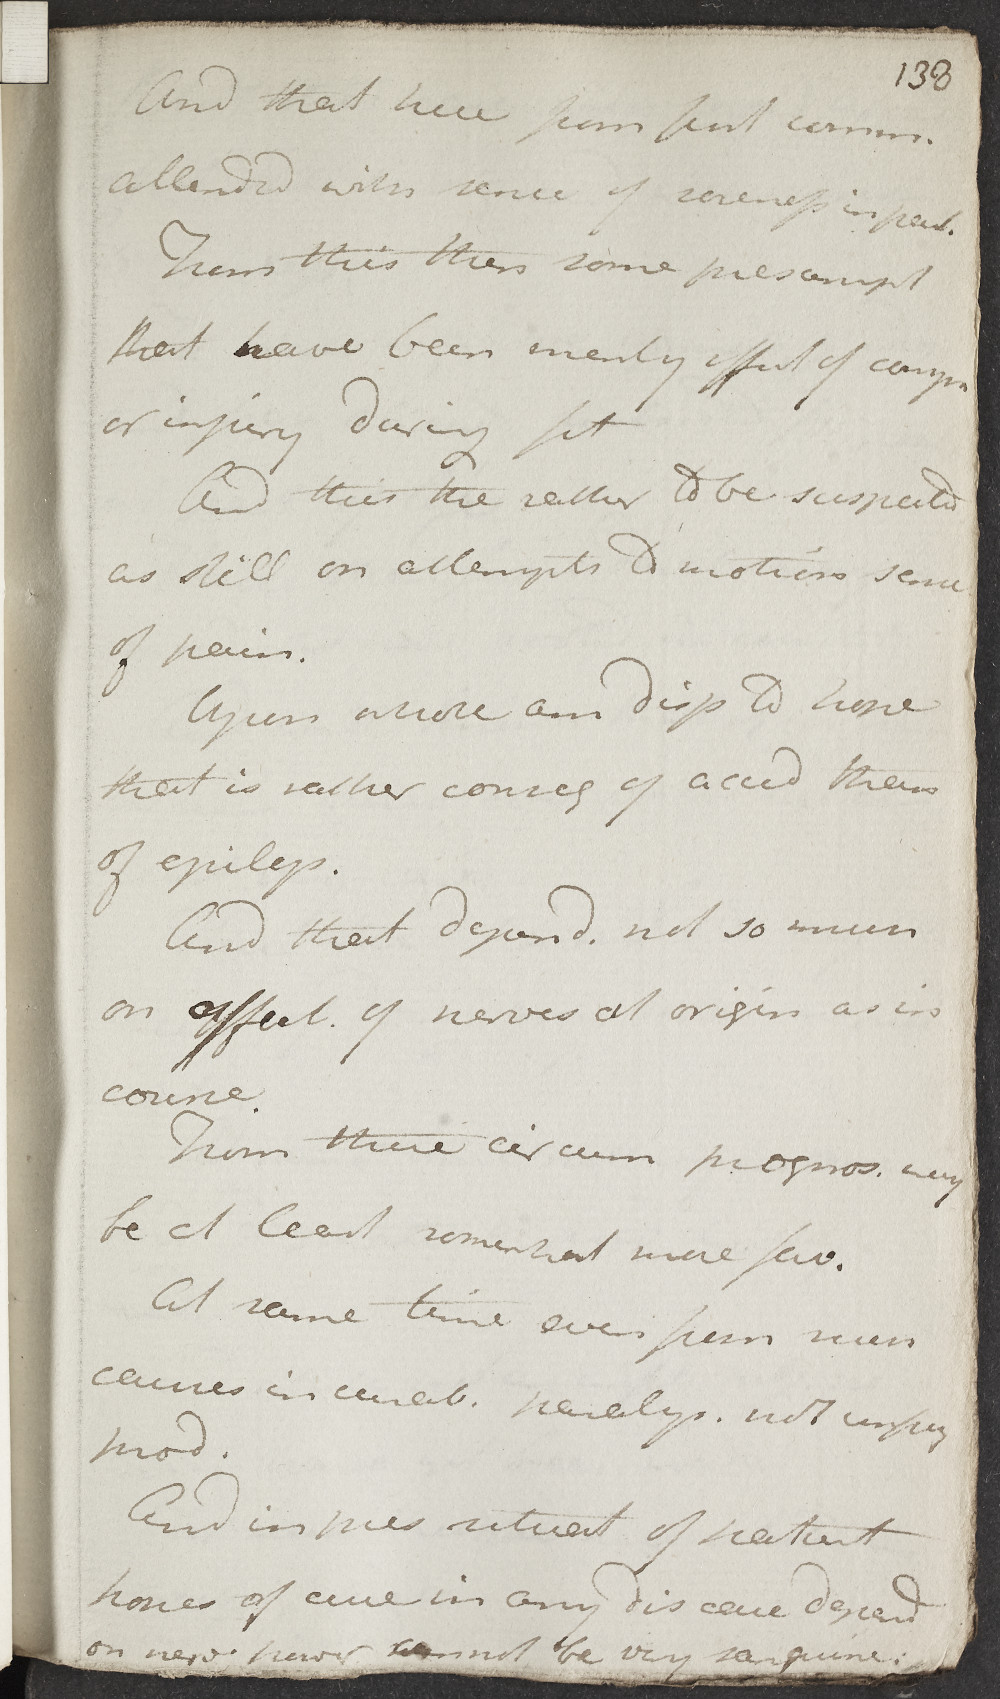 138
And that here from first comm.
attended with sence of soreness in part.
From this then some presumpt
that have been merely effect of compn
or injury during fit
And this the rather to be suspected
as still on attempts to motion sence
of pain.
Upon whole am disp to hope
that is rather conseq of accid than
of epilep.
And that depend. not so much
on affect. of nerves at origin as in
course.
From these circum prognos. may
be at least somewhat more fav.
At same time even from such
causes incurab. paralys. not unfreq
prod.
And in pres situat of patient
hopes of cure in any disease depend
on nerv. power cannot be very sanguine.